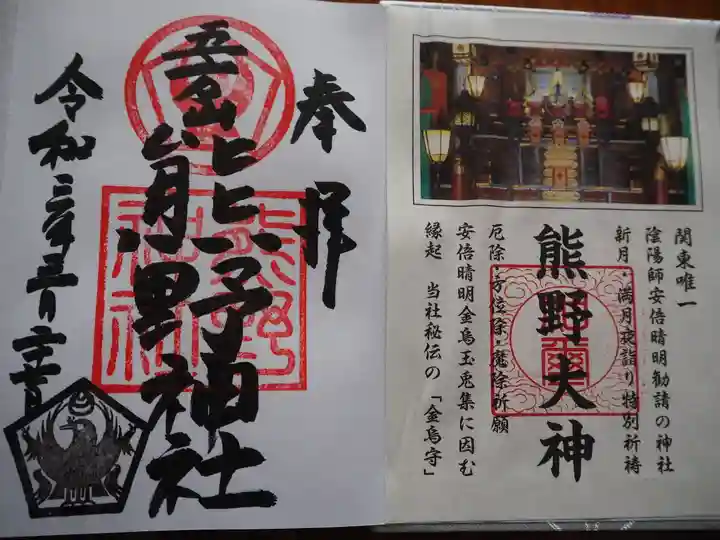 奉拝
立石熊野神社
令和三年三月二十七日
熊野神社
関東唯一
陰陽師安倍晴明勧請の神社
新月・満月夜詣り特別祈祷
熊野大神
厄除・方位除・魔除祈願
安倍晴明金烏玉兎集に因む
縁起 当社秘伝の「金烏守」